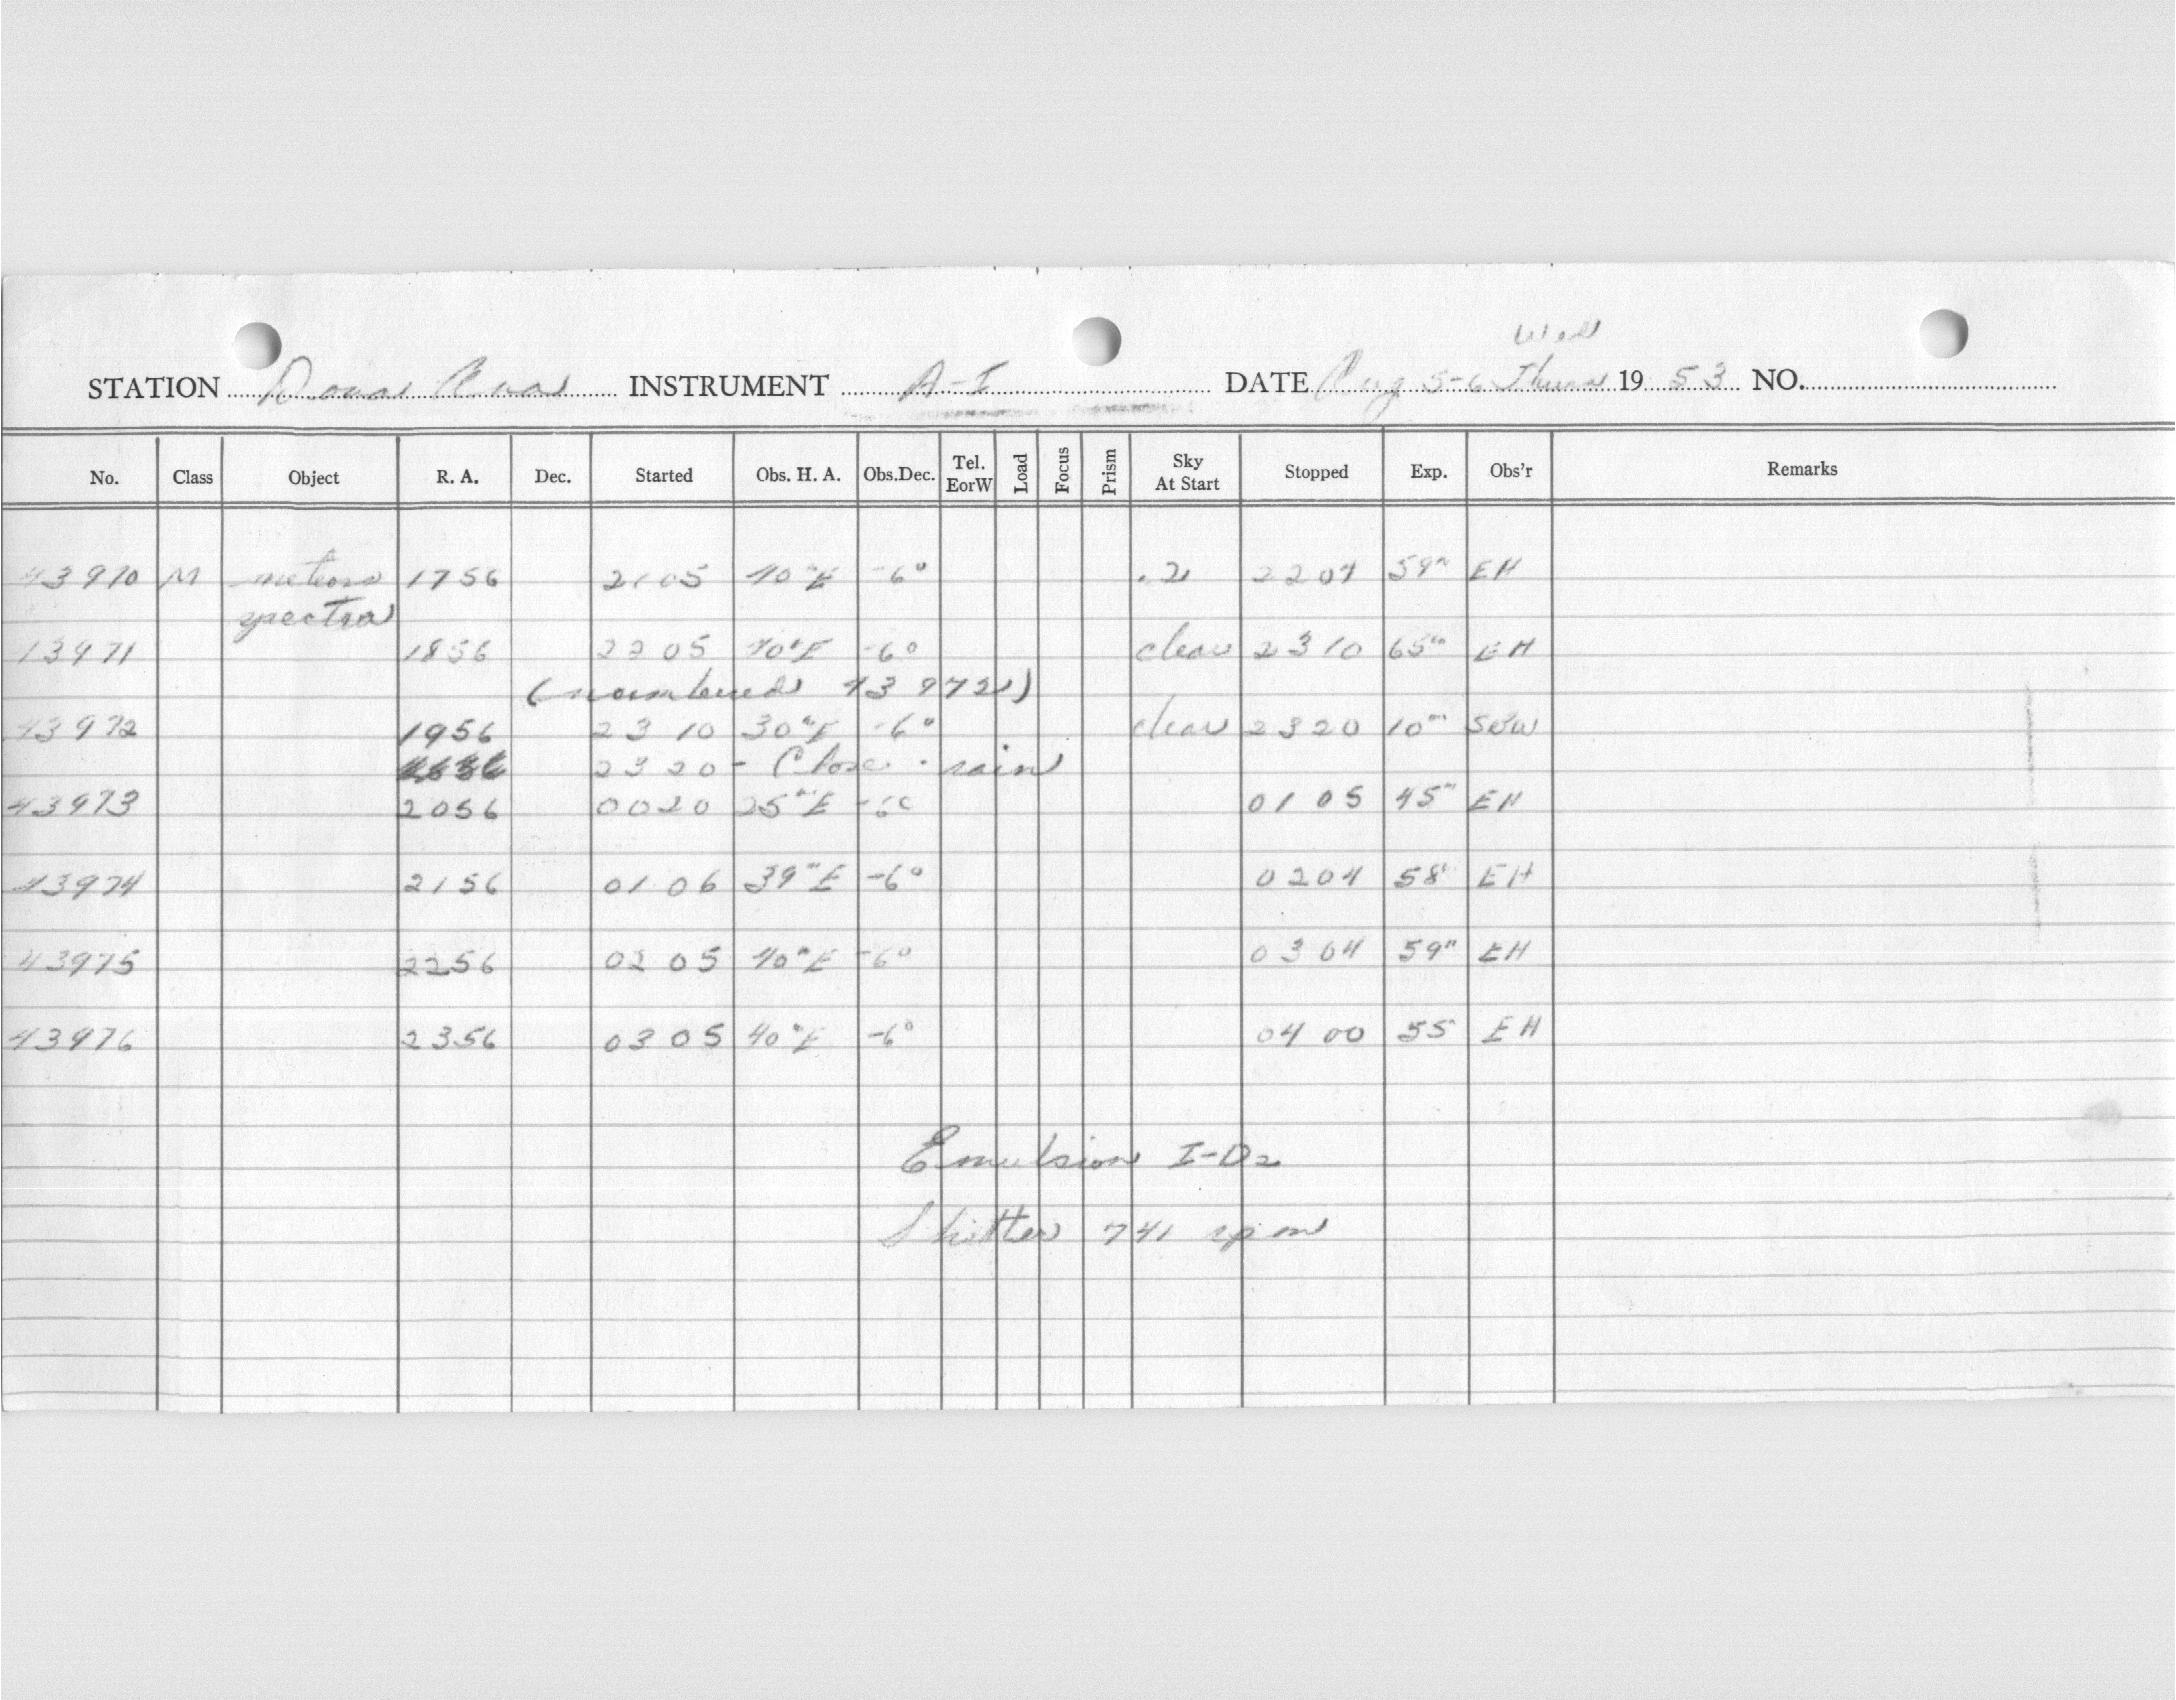 Wed
STATION Dona Ana INSTRUMENT A-I DATE Aug 5-6 Thurs 1953 NO.
No. Class Object R. A. Dec. Started Obs. H. A. Obs.Dec. Tel. EorW Load Focus Prism Sky At Start Stopped Exp. Obs'r Remarks
43970 M meteor 1756 2105 40ᵐE -6° .2 2204 59ᵐ EH
spectra
43971 1856 2205 40ᵐE -6° clear 2310 65ᵐ EH
(numbered 43972)
43972 1956 2310 30ᵐE -6° clear 2320 10ᵐ SBW
2320 - Close - rain
43973 2056 0020 25ᵐE -6° 0105 45ᵐ EH
43974 2156 0106 39ᵐE -6° 0204 58ᵐ EH
43975 2256 0205 40ᵐE -6° 0304 59ᵐ EH
43976 2356 0305 40ᵐE -6° 0400 55ᵐ EH
Emulsion I-D2
Shutter 741 rpm